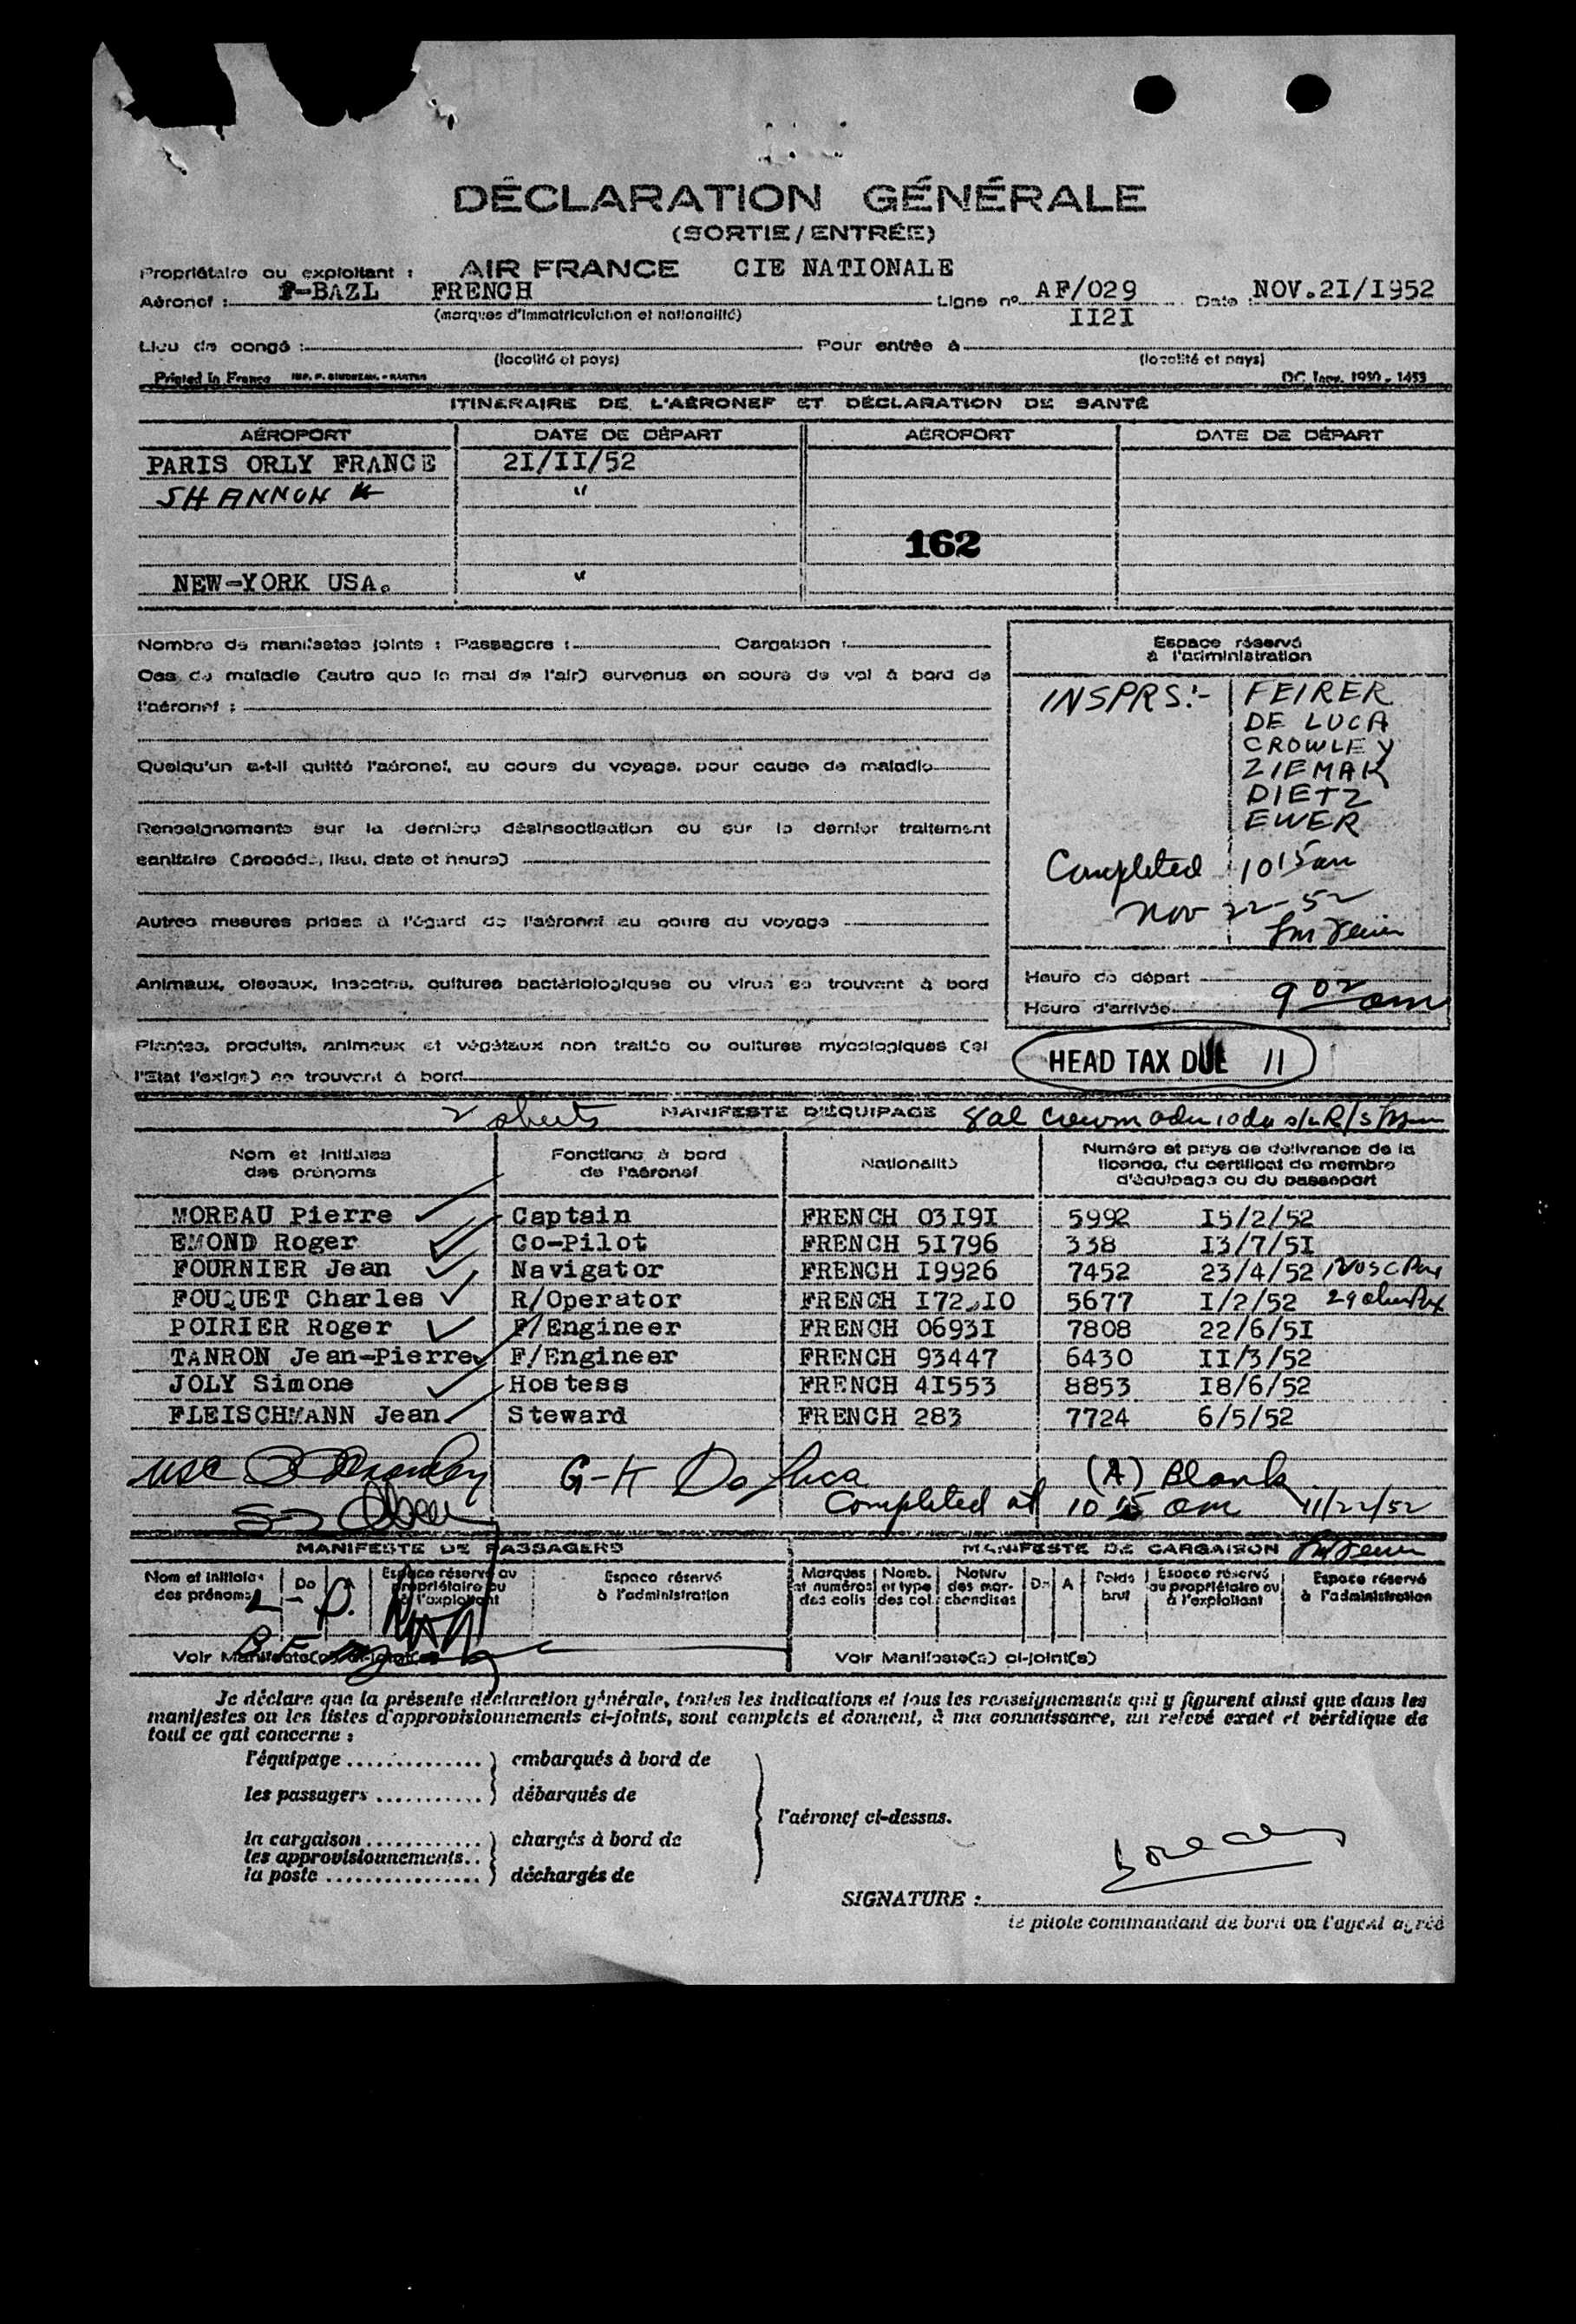 DÉCLARATION GÉNÉRALE
(SORTIE/ENTRÉE)
Propriétaire ou exploitant : AIR FRANCE CIE NATIONALE
Aéronef : F-BAZL FRENCH Ligne nº AF/029 Date : NOV.2I/I952
(marques d'immatriculation et nationalité) II2I
Lieu de congé : Pour entrée à
(localité et pays) (localité et pays)
Printed in France IMP. F. - NANTES DC Janv. 1950 - 1453
ITINERAIRE DE L'AÉRONEF ET DÉCLARATION DE SANTÉ
AÉROPORT DATE DE DÉPART AÉROPORT DATE DE DÉPART
PARIS ORLY FRANCE 2I/II/52
SHANNON "
162
NEW-YORK USA. "
Nombre de manifestes joints : Passagers : Cargaison :
Cas de maladie (autre que le mal de l'air) survenus en cours de vol à bord de
l'aéronef :
Quelqu'un a-t-il quitté l'aéronef, au cours du voyage, pour cause de maladie
Renseignements sur la dernière désinsectisation ou sur le dernier traitement
sanitaire (procédé, lieu, date et heure)
Autres mesures prises à l'égard de l'aéronef au cours du voyage
Animaux, oiseaux, insectes, cultures bactériologiques ou virus se trouvant à bord
Plantes, produits, animaux et végétaux non traités ou cultures mycologiques (si
l'Etat l'exige) se trouvant à bord
Espace réservé
à l'administration
INSPRS:- FEIRER
DE LUCA
CROWLEY
ZIEMAK
DIETZ
EWER
Completed 10 15 am
Nov 22-52
Heure de départ
Heure d'arrivée 9 02 am
HEAD TAX DUE 11
2 sheets MANIFESTE D'ÉQUIPAGE
Nom et initiales des prénoms Fonctions à bord de l'aéronef Nationalité Numéro et pays de délivrance de la licence, du certificat de membre d'équipage ou du passeport
MOREAU Pierre Captain FRENCH 03I9I 5992 I5/2/52
EMOND Roger Co-Pilot FRENCH 5I796 338 I3/7/5I
FOURNIER Jean Navigator FRENCH I9926 7452 23/4/52
FOUQUET Charles R/Operator FRENCH I72.I0 5677 I/2/52
POIRIER Roger F/Engineer FRENCH 0693I 7808 22/6/5I
TANRON Jean-Pierre F/Engineer FRENCH 93447 6430 II/3/52
JOLY Simone Hostess FRENCH 4I553 8853 I8/6/52
FLEISCHMANN Jean Steward FRENCH 283 7724 6/5/52
G-K De Luca (A) Blank
Completed at 10 15 am 11/22/52
MANIFESTE DE PASSAGERS MANIFESTE DE CARGAISON
Nom et initiales des prénoms De A Espace réservé au propriétaire ou à l'exploitant Espace réservé à l'administration Marques et numéros des colis Nomb. et type des col. Nature des marchandises De A Poids brut Espace réservé au propriétaire ou à l'exploitant Espace réservé à l'administration
Voir Manifeste(s) ci-joint(s) Voir Manifeste(s) ci-joint(s)
Je déclare que la présente déclaration générale, toutes les indications et tous les renseignements qui y figurent ainsi que dans les
manifestes ou les listes d'approvisionnements ci-joints, sont complets et donnent, à ma connaissance, un relevé exact et véridique de
tout ce qui concerne :
l'équipage .............. ) embarqués à bord de
les passagers ........... ) débarqués de
l'aéronef ci-dessus.
la cargaison ............ ) chargés à bord de
les approvisionnements..
la poste ................ ) déchargés de
SIGNATURE :
le pilote commandant de bord ou l'agent agréé